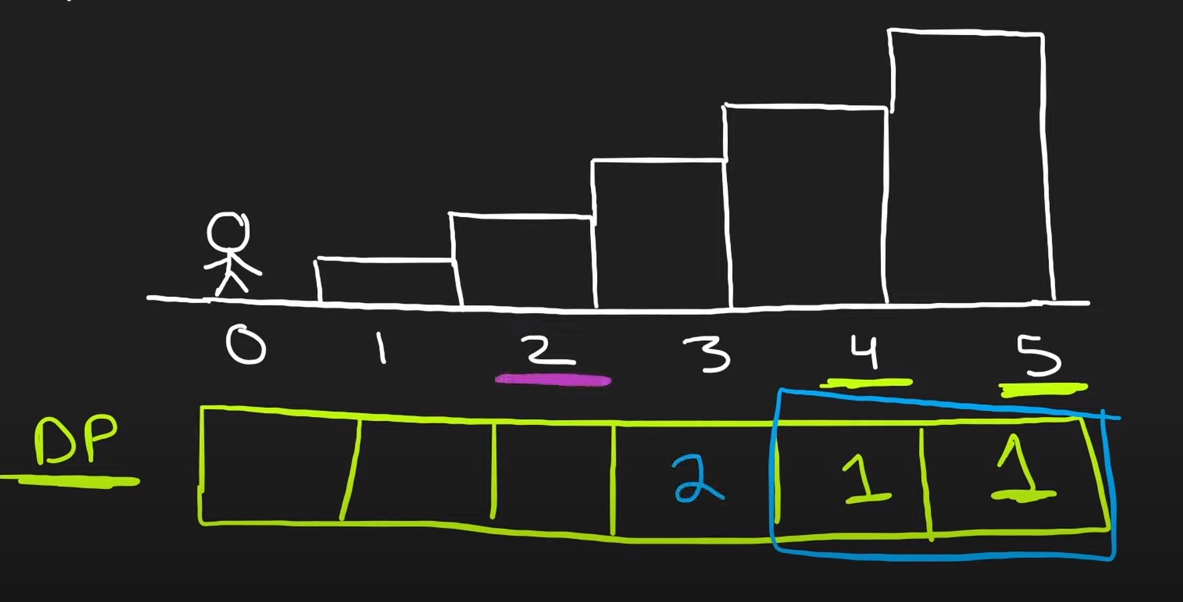 0 1 2 3 4 5
DP 2 1 1